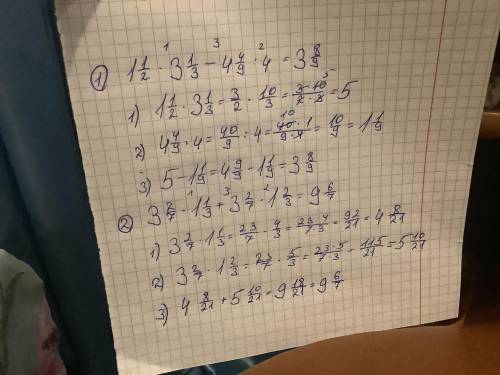 1) 1 1/2 · 3 1/3 − 4 4/9 : 4 = 3 8/9
1) 1 1/2 · 3 1/3 = 3/2 · 10/3 = 3·10/2·3 = 5
2) 4 4/9 : 4 = 40/9 : 4 = 40·1/9·4 = 10/9 = 1 1/9
3) 5 − 1 1/9 = 4 9/9 − 1 1/9 = 3 8/9
2) 3 2/7 · 1 1/3 + 3 2/7 · 1 2/3 = 9 6/7
1) 3 2/7 · 1 1/3 = 23/7 · 4/3 = 23·4/7·3 = 92/21 = 4 8/21
2) 3 2/7 · 1 2/3 = 23/7 · 5/3 = 23·5/7·3 = 115/21 = 5 10/21
3) 4 8/21 + 5 10/21 = 9 18/21 = 9 6/7